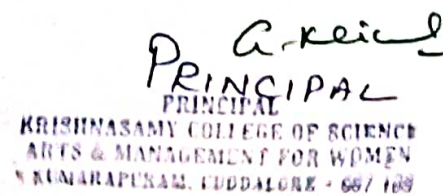 PRINCIPAL
PRINCIPAL
KRISHNASAMY COLLEGE OF SCIENCE
ARTS & MANAGEMENT FOR WOMEN
KUMARAPURAM, CUDDALORE - 607 109